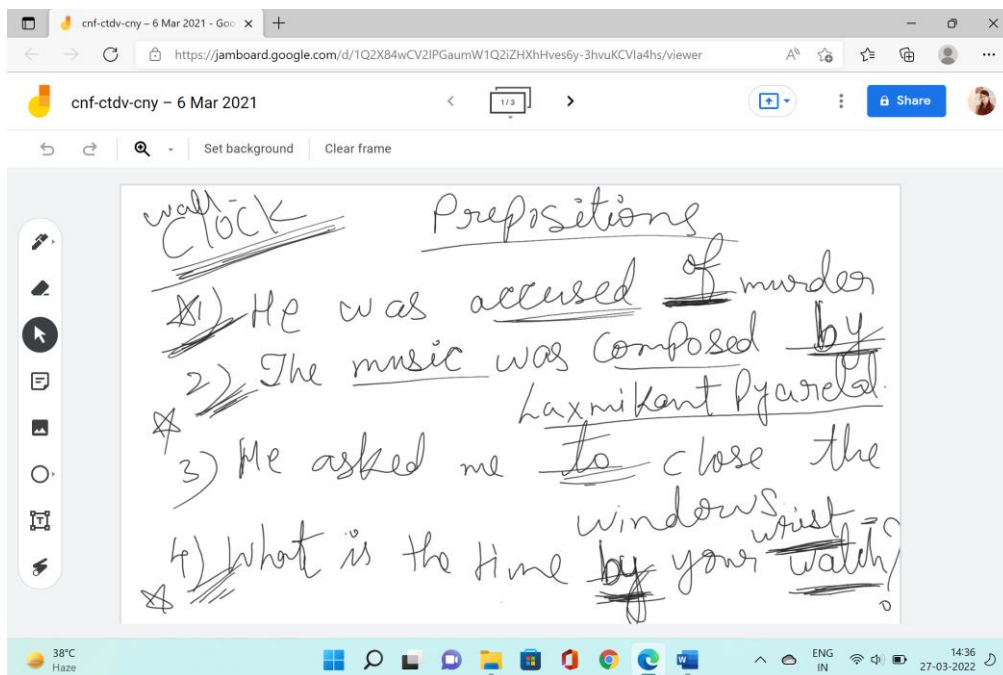 cnf-ctdv-cny – 6 Mar 2021 - Goo
https://jamboard.google.com/d/1Q2X84wCV2IPGaumW1Q2iZHXhHves6y-3hvuKCVIa4hs/viewer
cnf-ctdv-cny – 6 Mar 2021
1/3
Share
Set background Clear frame
wall-
Clock Prepositions
1) He was accused of murder
2) The music was composed by
Laxmikant Pyarelal.
3) He asked me to close the
windows.
wrist-
4) What is the time by your watch?
38°C
Haze
ENG
IN
14:36
27-03-2022